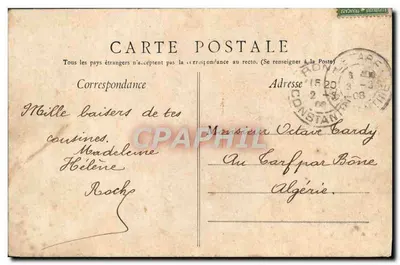 CARTE POSTALE
Tous les pays étrangers n'acceptent pas la correspondance au recto. (Se renseigner à la Poste)
Correspondance
Mille baisers de tes
cousines.
Madeleine
Hélène
Roch
Adresse
Monsieur Octave Tardy
Au Tarf par Bône
Algérie.
BONE
15 20
2 - 3
CONSTANTINE